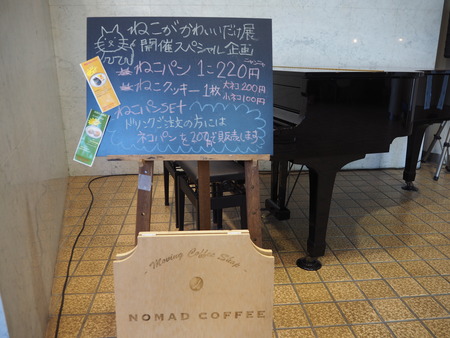 ねこがかわいいだけ展
開催スペシャル企画
ねこパン 1コ 220円
ねこクッキー 1枚 大ネコ200円
小ネコ100円
ねこパンSET
ドリンクご注文の方には
ネコパンを200円で販売します
Moving Coffee Shop
NOMAD COFFEE